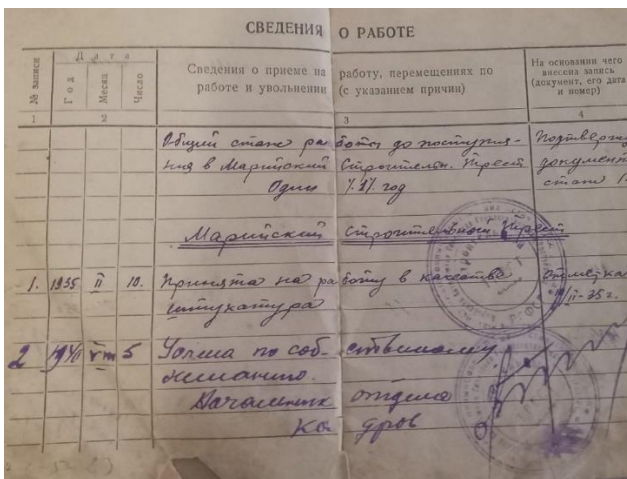 СВЕДЕНИЯ О РАБОТЕ
Дата
№ записи
Год
Месяц
Число
Сведения о приеме на работу, перемещениях по
работе и увольнении (с указанием причин)
На основании чего
внесена запись
(документ, его дата
и номер)
1 2 3 4
Общий стаж работы до поступле-
ния в Марийский Строительн. Трест
Один 1 год
документ
стаж
Марийский Строительный Трест
1. 1935 II 10. Принята на работу в качестве
штукатура
II-35 г.
2 1940 VIII 5 Уволена по собственному
желанию.
Начальник отдела
кадров